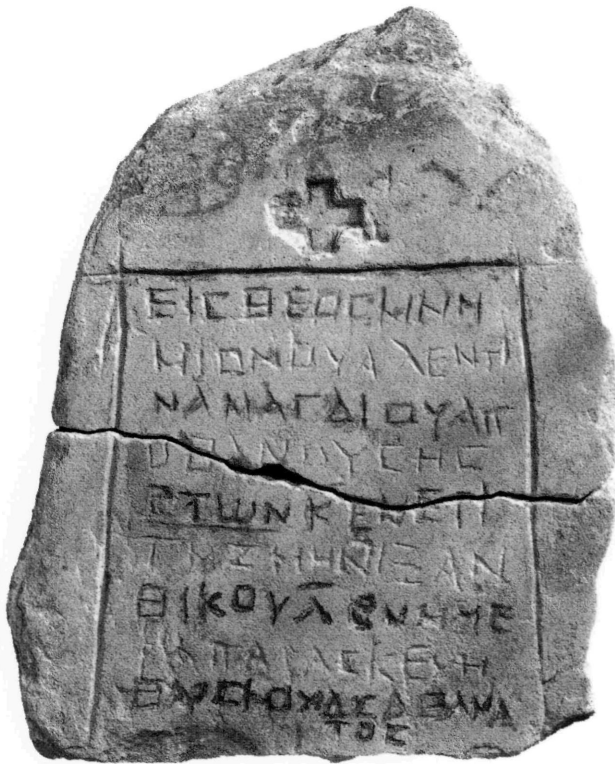 ΕΙϹΘΕΟϹΜΝΗ
ΜΙΟΝΟΥΑΛΕΝΤΙ
ΝΑΜΑΓΔΙΟΥΑΠ
ΟΘΑΝΟΥϹΗϹ
ΕΤΩΝΚΕΝΕΤΙ
ΤΥΣΜΗΝΙΞΑΝ
ΘΙΚΟΥΛΕΝΗΜΕ
ΡΑΠΑΡΑϹΚΕΥΗ
ΘΑΡϹΙΟΥΔΕϹΑΘΑΝΑ
ΤΟϹ